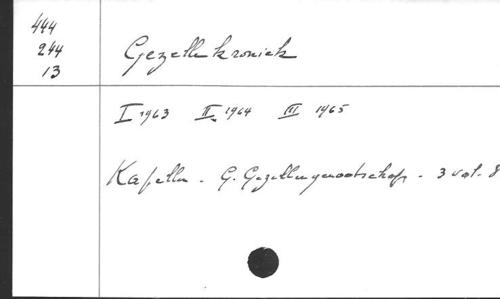 444
244
13
Gezellekroniek
I 1963 II 1964 III 1965
Kapellen - G. Gezellengenootschap - 3 vol. 8